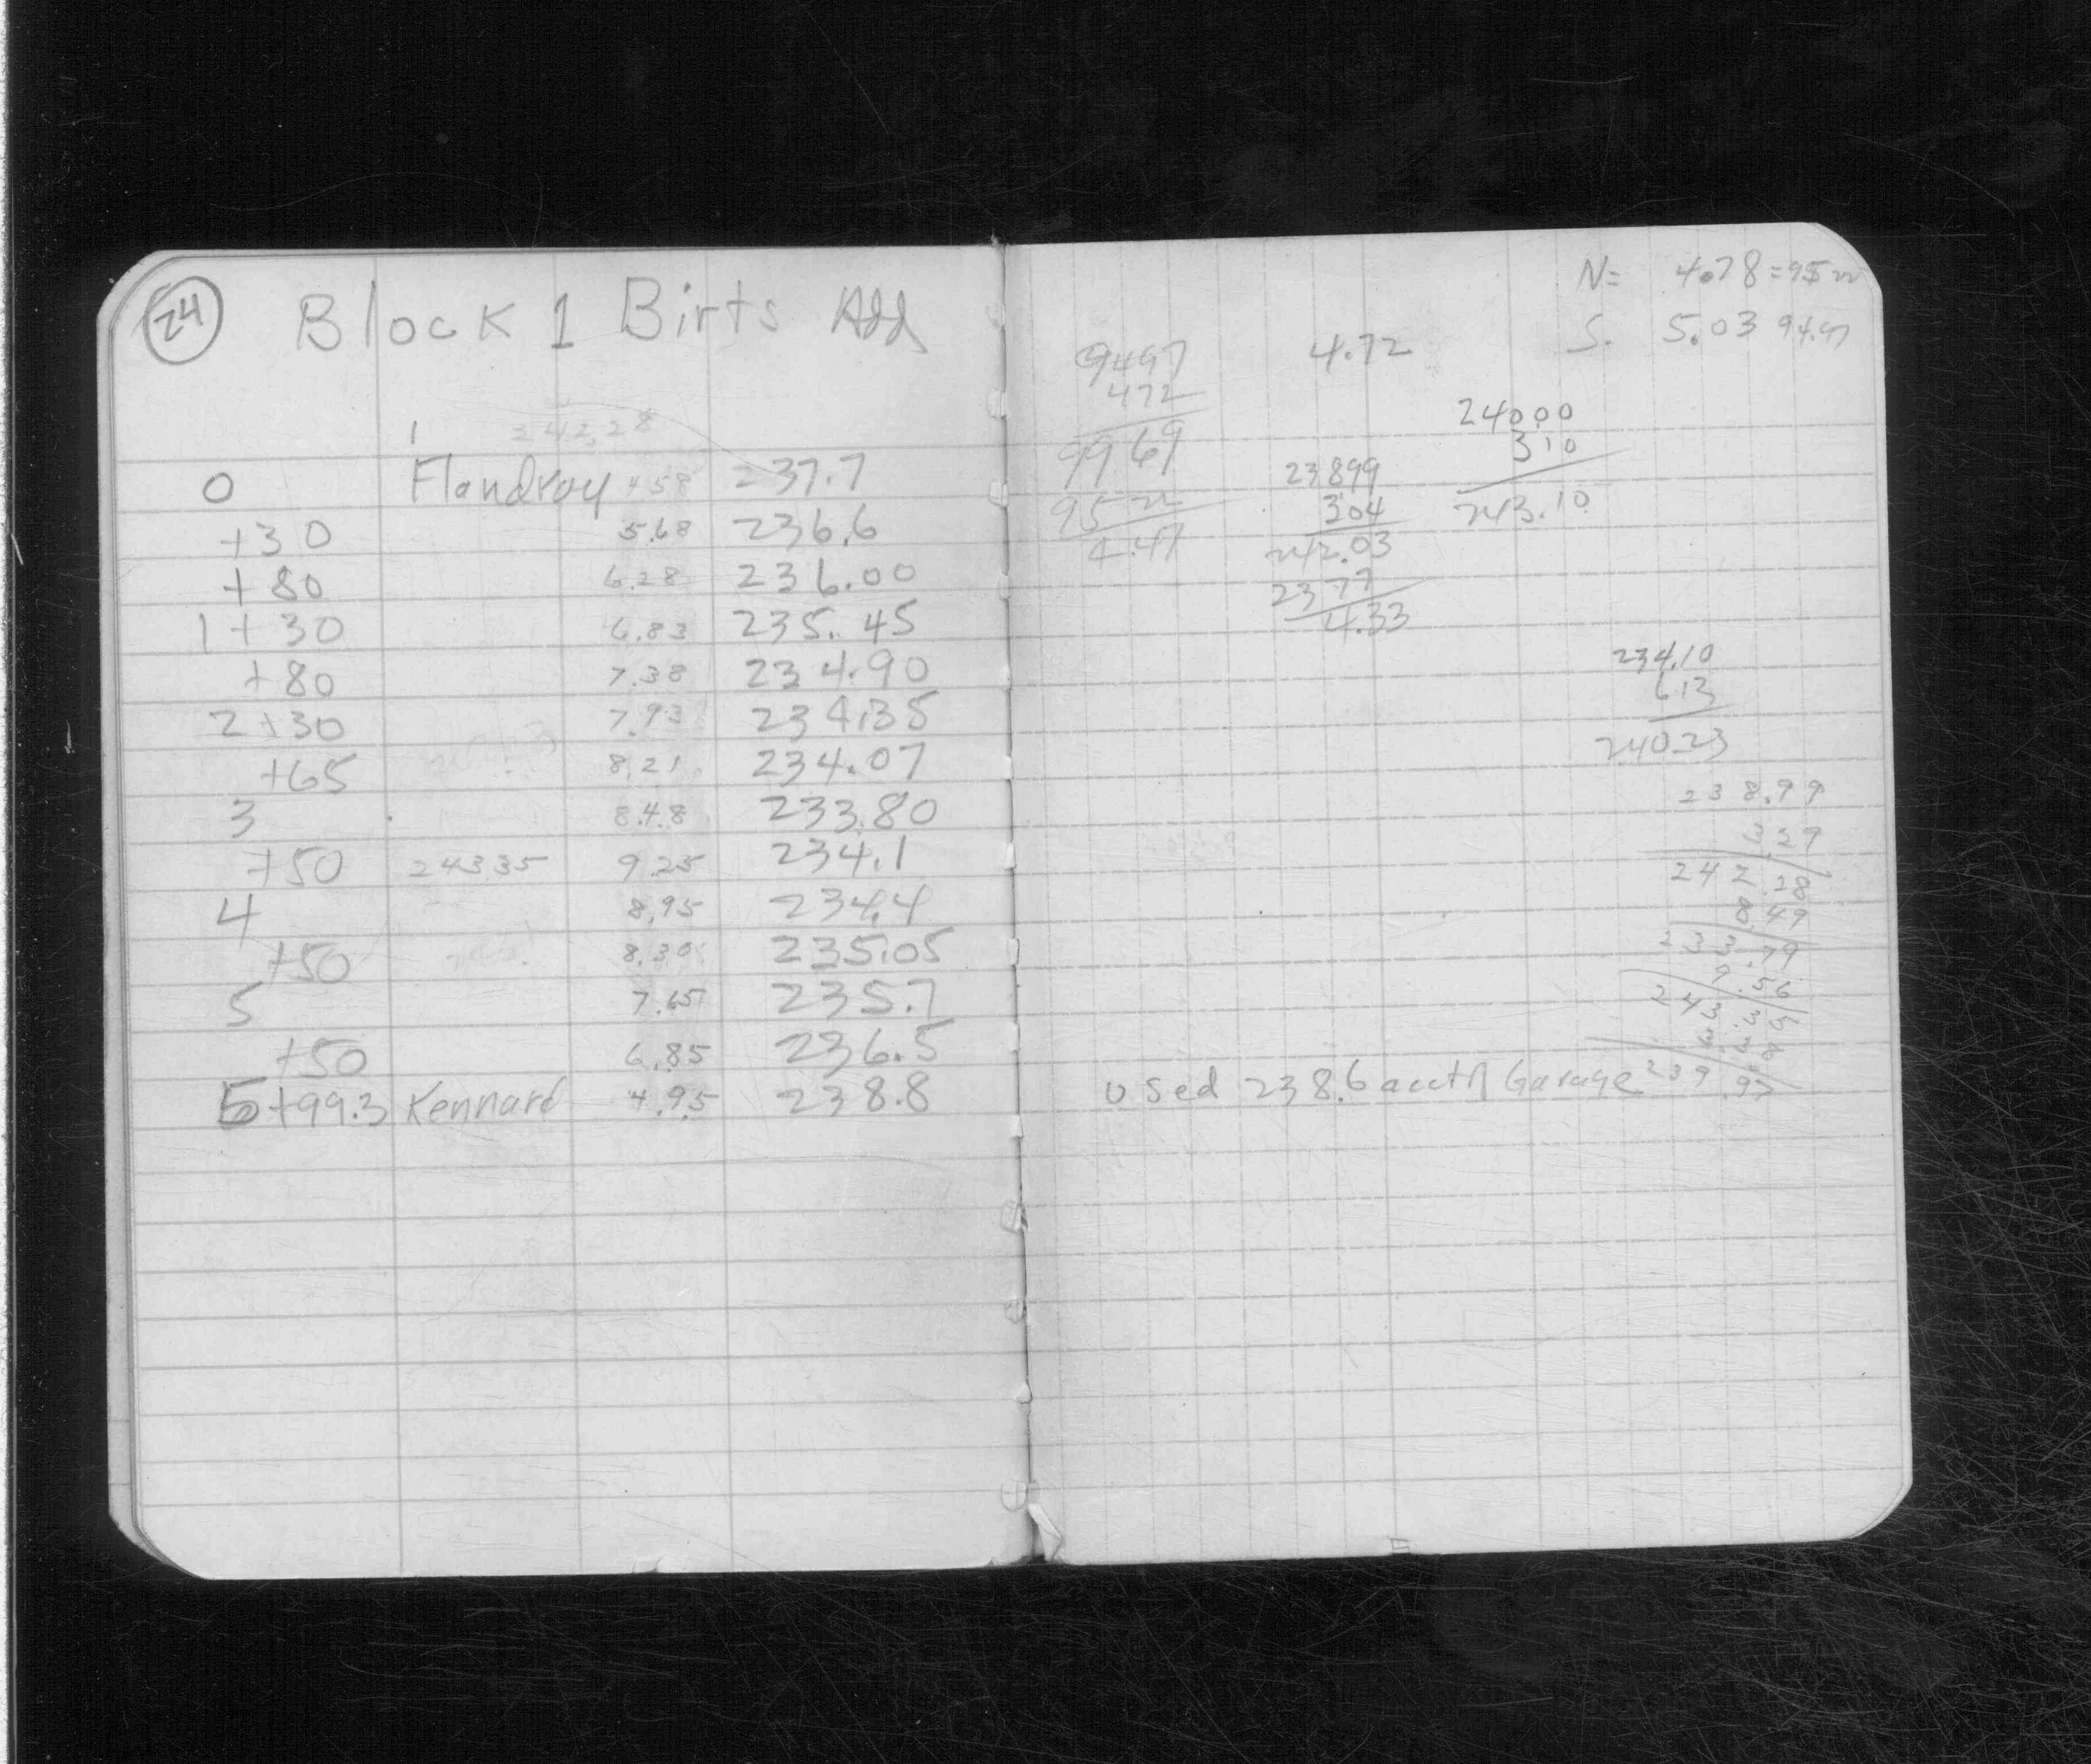 24 Block 1 Birts Add
242.28
0 Flandray 4.58 237.7
+30 5.68 236.6
+80 6.28 236.00
1+30 6.83 235.45
+80 7.38 234.90
2+30 7.93 234.35
+65 8.21 234.07
3 8.48 233.80
+50 243.35 9.25 234.1
4 8.95 234.4
+50 8.30 235.05
5 7.65 235.7
+50 6.85 236.5
5+99.3 Kennard 4.95 238.8
N= 4.78 = 95.22
S. 5.03 94.97
9497
472
9969
9522
4.47
4.72
23899
304
242.03
2377
4.33
24000
310
243.10
234.10
613
240.23
238.99
3.29
242.28
8.49
233.79
9.56
243.35
3.38
239.97
Used 238.6 acct of Garage